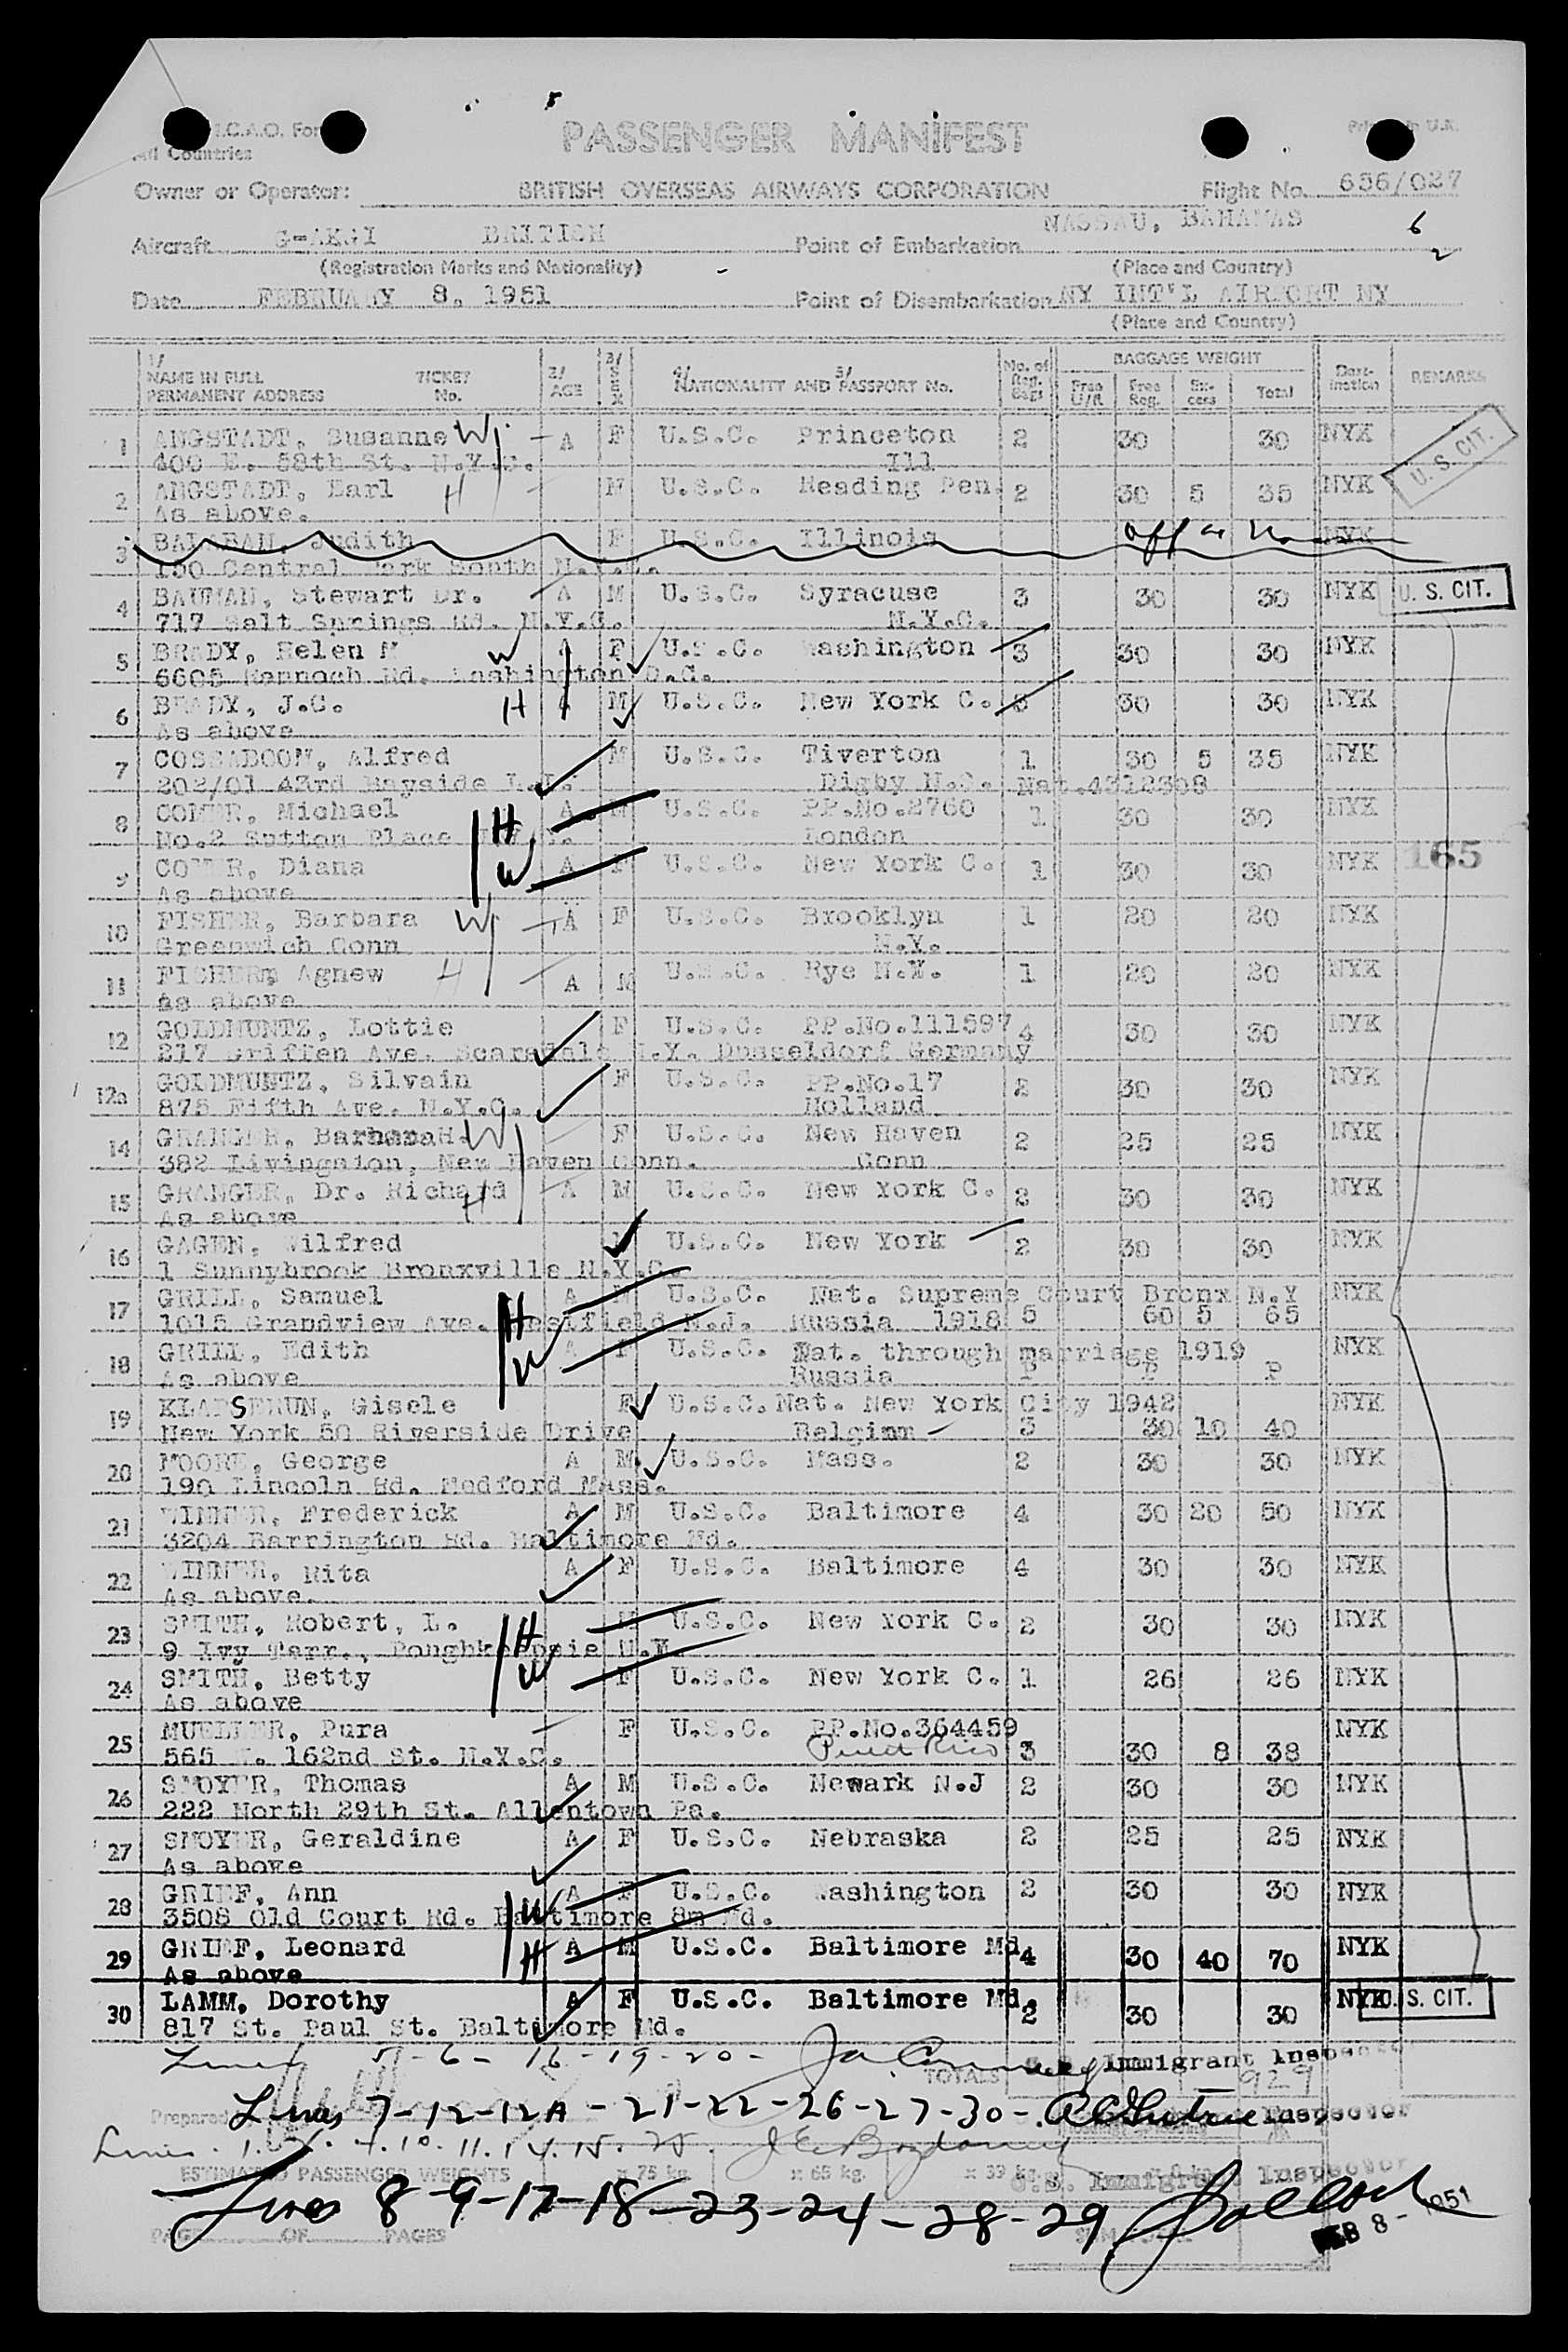 I.C.A.O. For
All Countries
PASSENGER MANIFEST
Owner or Operator: BRITISH OVERSEAS AIRWAYS CORPORATION Flight No. 656/027
Aircraft G-AKGI BRITISH Point of Embarkation NASSAU, BAHAMAS 6
(Registration Marks and Nationality) (Place and Country) 2
Date FEBRUARY 8, 1951 Point of Disembarkation NY INT'L AIRPORT NY
(Place and Country)
1/ NAME IN FULL PERMANENT ADDRESS TICKET No. 2/ AGE 3/ SEX 4/ 5/ NATIONALITY AND PASSPORT No. No. of Reg. Bags BAGGAGE WEIGHT Free U/R Free Reg. Excess Total Destination REMARKS
1 ANGSTADT, Susanne W A F U.S.C. Princeton 2 30 30 NYK
400 E. 58th St. N.Y.C. Ill U.S. CIT.
2 ANGSTADT, Earl H M U.S.C. Reading Pen. 2 30 5 35 NYK
As above.
3 BALABAN, Judith F U.S.C. Illinois off NYK
150 Central Park South N.Y.C.
4 BAUMAN, Stewart Dr. A M U.S.C. Syracuse 3 30 30 NYK U. S. CIT.
717 Salt Springs Rd. N.Y.C. N.Y.C.
5 BRADY, Helen M W A F U.S.C. Washington 3 30 30 NYK
6605 Rannoch Rd. Washington D.C.
6 BRADY, J.C. H A M U.S.C. New York C. 3 30 30 NYK
As above
7 COSSABOOM, Alfred M U.S.C. Tiverton 1 30 5 35 NYK
202/01 43rd Bayside L.I. Digby N.S. Nat.4312308
8 COMER, Michael H A M U.S.C. PP.No.2760 1 30 30 NYK
No.2 Sutton Place N.Y. London
9 COMER, Diana W A F U.S.C. New York C. 1 30 30 NYK 165
As above
10 FISHER, Barbara W A F U.S.C. Brooklyn 1 20 20 NYK
Greenwich Conn N.Y.
11 FISHER, Agnew H A M U.S.C. Rye N.Y. 1 20 20 NYK
As above
12 GOLDMUNTZ, Lottie F U.S.C. PP.No.111597 4 30 30 NYK
217 Griffen Ave. Scarsdale N.Y. Dusseldorf Germany
12a GOLDMUNTZ, Silvain F U.S.C. PP.No.17 2 30 30 NYK
875 Fifth Ave. N.Y.C. Holland
14 GRANGER, Barbara H. W F U.S.C. New Haven 2 25 25 NYK
382 Livingston, New Haven Conn. Conn
15 GRANGER, Dr. Richard H A M U.S.C. New York C. 2 30 30 NYK
As above
16 GAGEN, Wilfred M U.S.C. New York 2 30 30 NYK
1 Sunnybrook Bronxville N.Y.C.
17 GRILL, Samuel H A M U.S.C. Nat. Supreme Court Bronx N.Y NYK
1015 Grandview Ave. Westfield N.J. Russia 1918 5 60 5 65
18 GRILL, Edith W A F U.S.C. Nat. through marriage 1919 NYK
As above Russia P P P
19 Gisele F U.S.C. Nat. New York City 1942 NYK
New York 50 Riverside Drive Belgium 3 30 10 40
20 MOORE, George A M. U.S.C. Mass. 2 30 30 NYK
190 Lincoln Rd. Medford Mass.
21 WINNER, Frederick A M U.S.C. Baltimore 4 30 20 50 NYK
3204 Barrington Rd. Baltimore Md.
22 WINNER, Rita A F U.S.C. Baltimore 4 30 30 NYK
As above.
23 SMITH, Robert, L. H M U.S.C. New York C. 2 30 30 NYK
9 Ivy Terr., Poughkeepsie N.Y
24 SMITH, Betty W F U.S.C. New York C. 1 26 26 NYK
As above
25 MUELLER, Pura F U.S.C. PP.No.364459 NYK
565 W. 162nd St. N.Y.C. Puert Rico 3 30 8 38
26 SMOYER, Thomas A M U.S.C. Newark N.J 2 30 30 NYK
222 North 29th St. Allentown Pa.
27 SMOYER, Geraldine A F U.S.C. Nebraska 2 25 25 NYK
As above
28 GRIEF, Ann W A F U.S.C. Washington 2 30 30 NYK
3508 Old Court Rd. Baltimore 8m Md.
29 GRIEF, Leonard H A M U.S.C. Baltimore Md. 4 30 40 70 NYK
As above
30 LAMM, Dorothy A F U.S.C. Baltimore Md. 2 30 30 NYK U. S. CIT.
817 St. Paul St. Baltimore Md.
Lines 5-6-16-19-20- Immigrant Inspector
TOTALS 929
Prepared
Lines 7-12-12A-21-22-26-27-30- Inspector
Lines 1. 2. 4. 10. 11. 14. 15. 25.
ESTIMATED PASSENGER WEIGHTS x 75 kg. x 65 kg. x 39 kg. U.S. Immigrant Inspector
Lines 8-9-17-18-23-24-28-29
PAGE OF PAGES FEB 8 - 1951